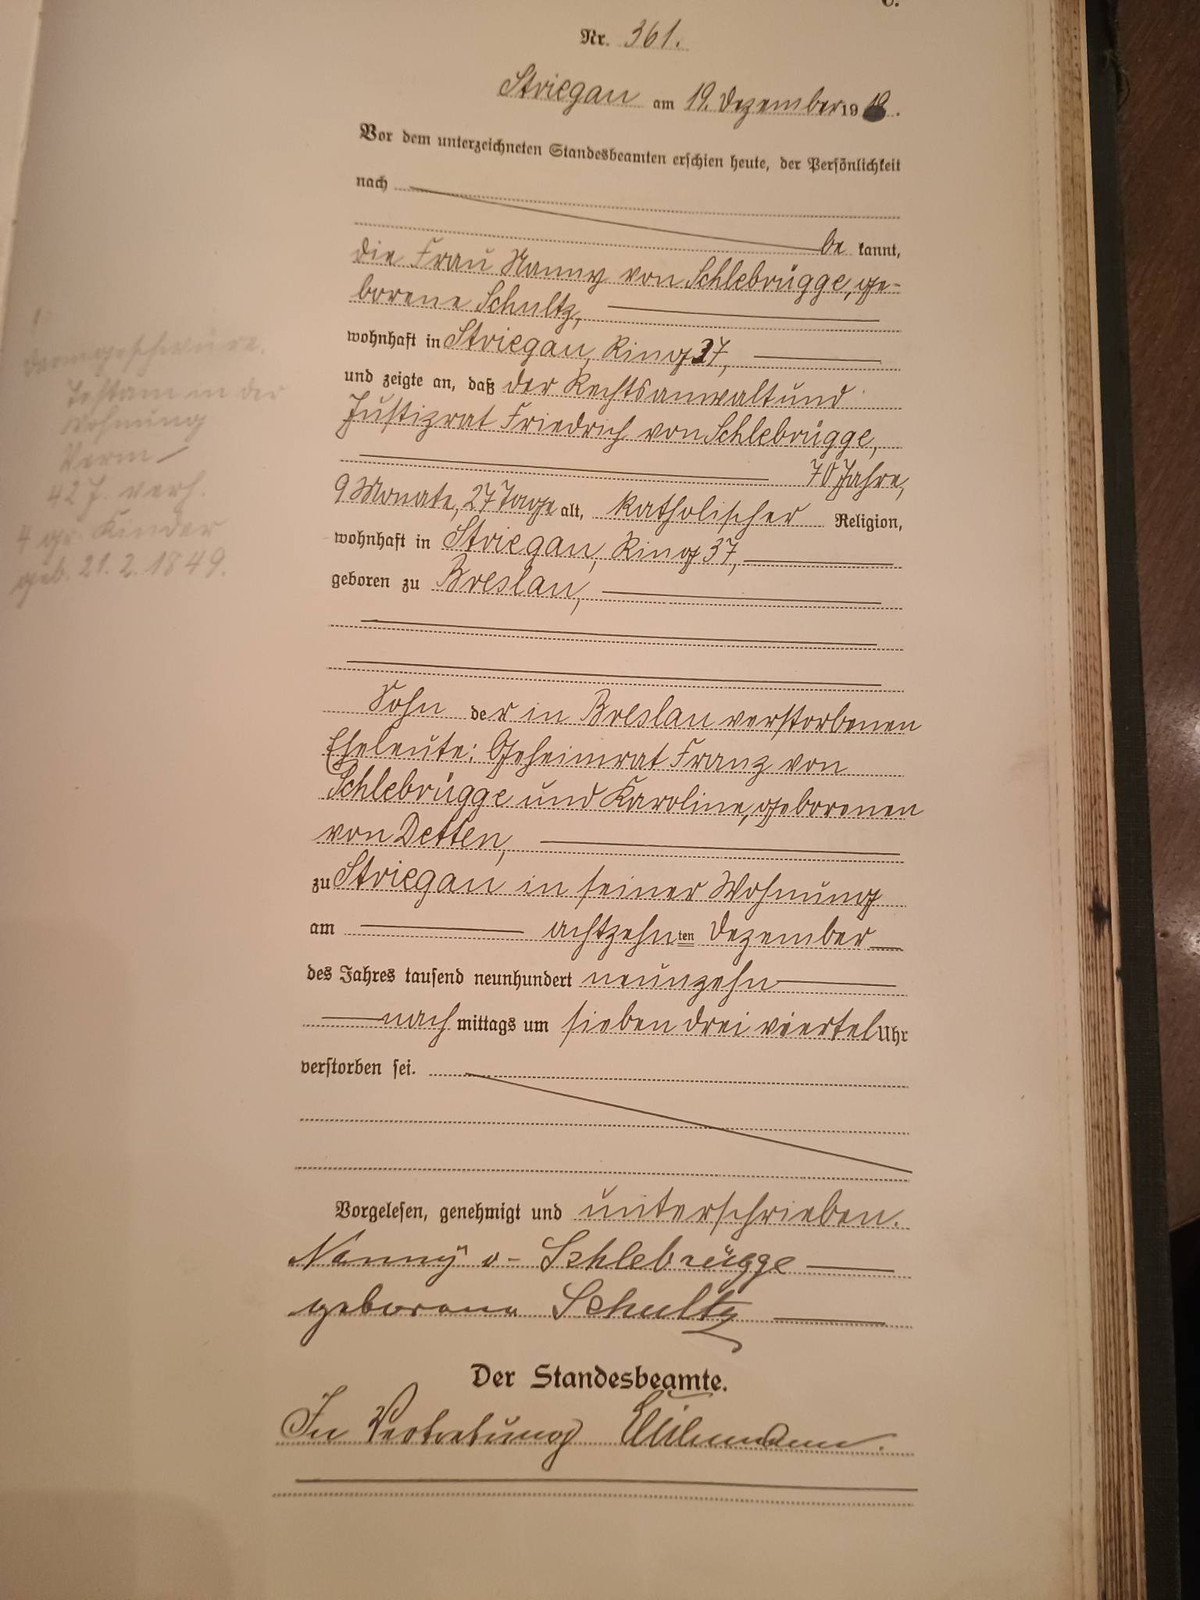 Nr. 361.
Striegau am 19. Dezember 19
Vor dem unterzeichneten Standesbeamten erschien heute, der Persönlichkeit
nach
be kannt,
die Frau Nanny von Schlebrügge, ge-
borene Schultz,
wohnhaft in Striegau, Ring 37,
und zeigte an, daß der Rechtsanwalt und
Justizrat Friedrich von Schlebrügge,
70 Jahre,
9 Monate, 27 Tage alt, katholischer Religion,
wohnhaft in Striegau, Ring 37,
geboren zu Breslau,
Sohn der in Breslau verstorbenen
Eheleute: Geheimrat Franz von
Schlebrügge und Karoline, geborenen
von Detten,
zu Striegau in seiner Wohnung
am achtzehnten Dezember
des Jahres tausend neunhundert neunzehn
nach mittags um sieben drei viertel Uhr
verstorben sei.
Vorgelesen, genehmigt und unterschrieben.
Nanny v. Schlebrügge
geborene Schultz
Der Standesbeamte.
In Vertretung
Darmgeschwüre.
Testam in der
Wohnung
Verm
42 J. verh.
4 gr. Kinder
geb. 21. 2. 1849.